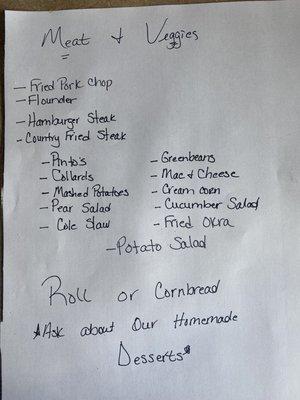 Meat & Veggies
- Fried Pork Chop
- Flounder
- Hamburger Steak
- Country Fried Steak
- Pinto's
- Collards
- Mashed Potatoes
- Pear Salad
- Cole Slaw
- Greenbeans
- Mac & Cheese
- Cream corn
- Cucumber Salad
- Fried Okra
- Potato Salad
Roll or Cornbread
*Ask about Our Homemade
Desserts*